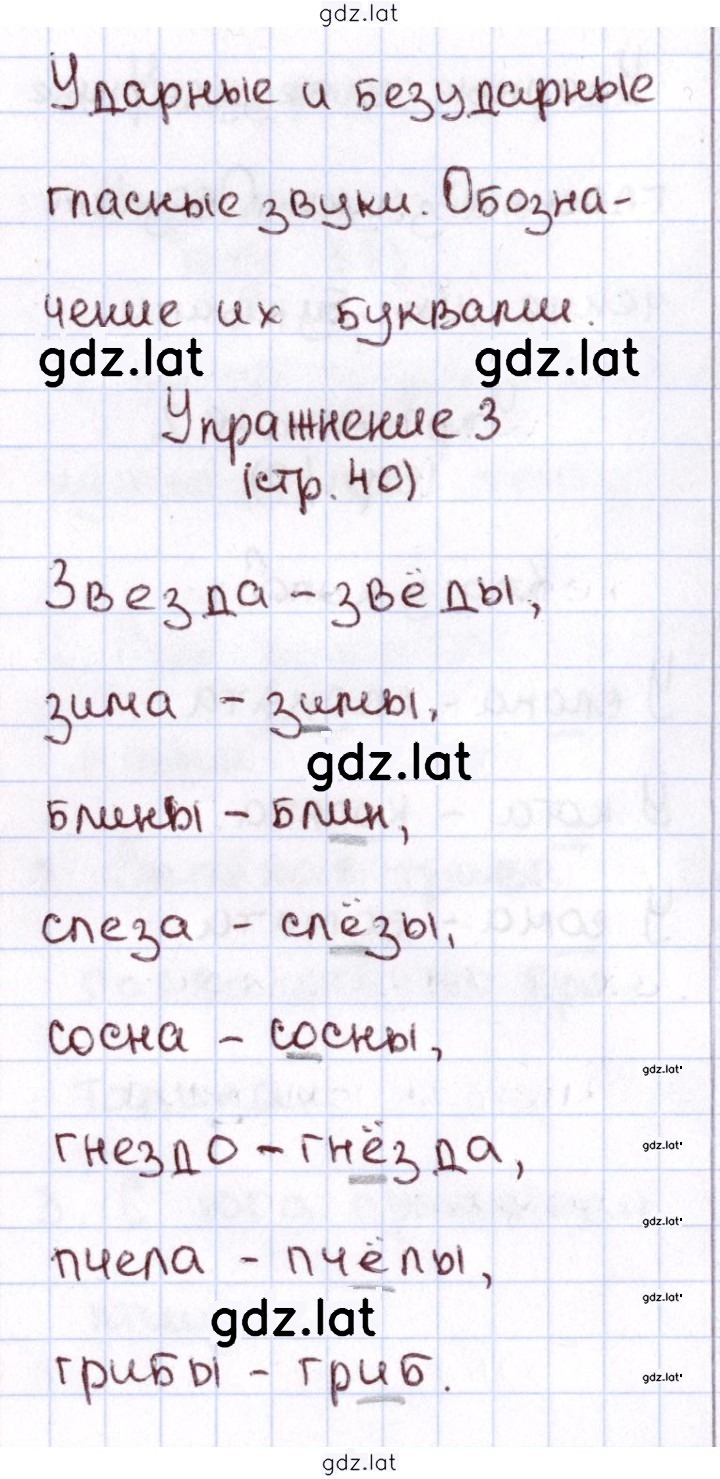 gdz.lat
Ударные и безударные
гласные звуки. Обозна-
чение их буквами.
gdz.lat gdz.lat
Упражнение 3
(стр. 40)
Звезда - звёды,
зима - зимы,
gdz.lat
блины - блин,
слеза - слёзы,
сосна - сосны,
gdz.lat
гнездо - гнёзда,
gdz.lat
gdz.lat
пчела - пчёлы,
gdz.lat
gdz.lat
грибы - гриб.
gdz.lat
gdz.lat